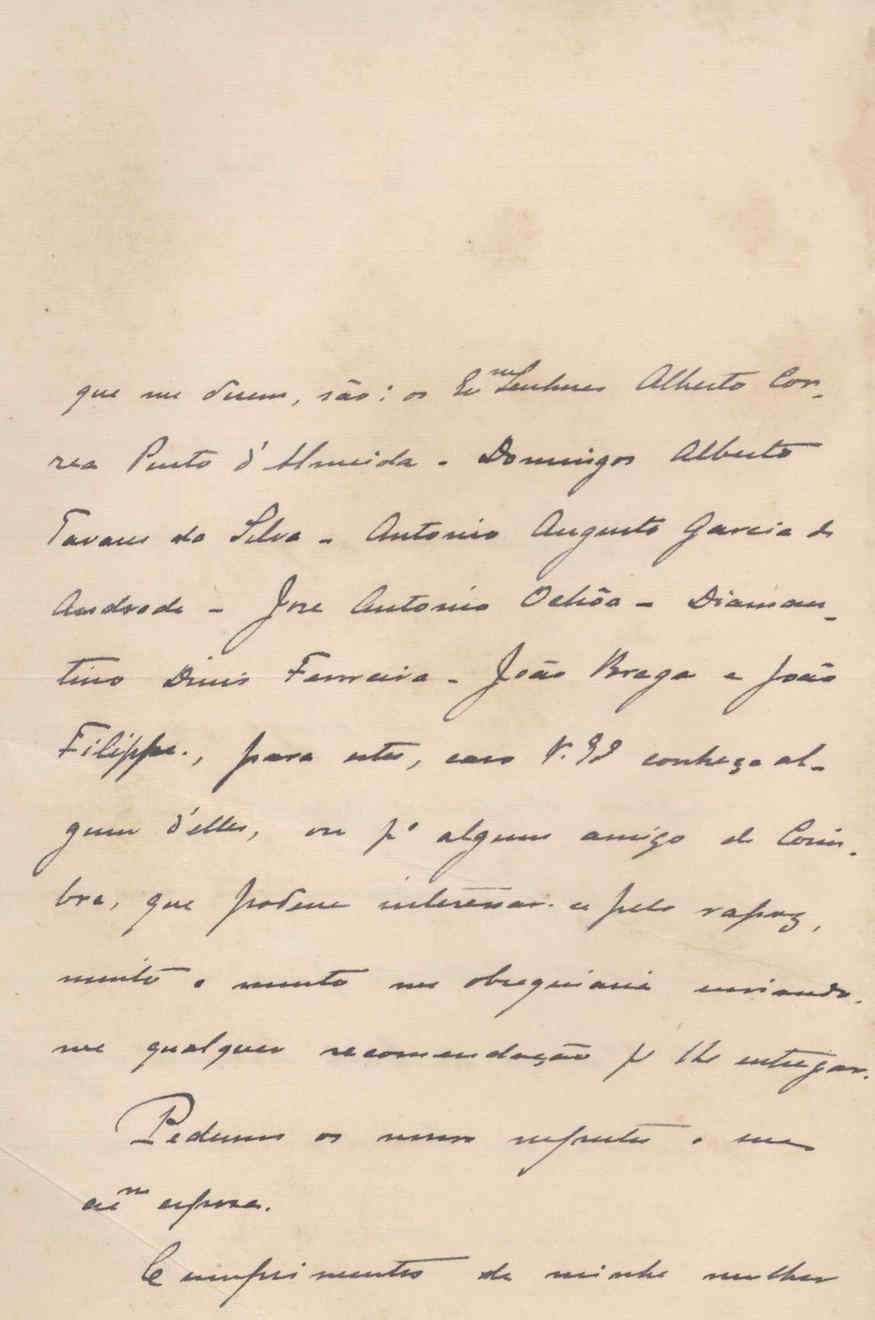 que me dizem, são: os Ex.mos Senhores Alberto Cor-
rea Pinto d'Almeida - Domingos Alberto
Tavares da Silva - Antonio Augusto Garcia de
Andrade - Jose Antonio Ochôa - Diaman-
tino Diniz Ferreira - João Braga e João
Filippe., para estes, caso V. Ex conheça al-
gum d'elles, ou pª algum amigo de Coim-
bra, que podesse interessar-se pelo rapaz,
muito e muito me obsequiaria enviando-
me qualquer recomendação pª lhe entregar.
Pedimos os nossos respeitos a sua
exma esposa.
Cumprimentos de minha mulher